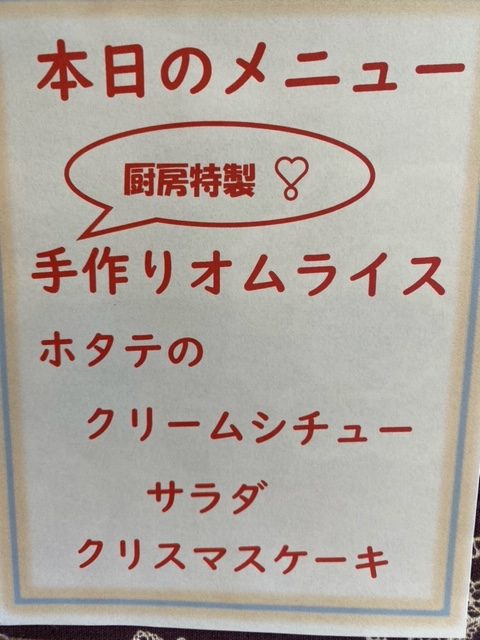 本日のメニュー
厨房特製❣
手作りオムライス
ホタテの
クリームシチュー
サラダ
クリスマスケーキ